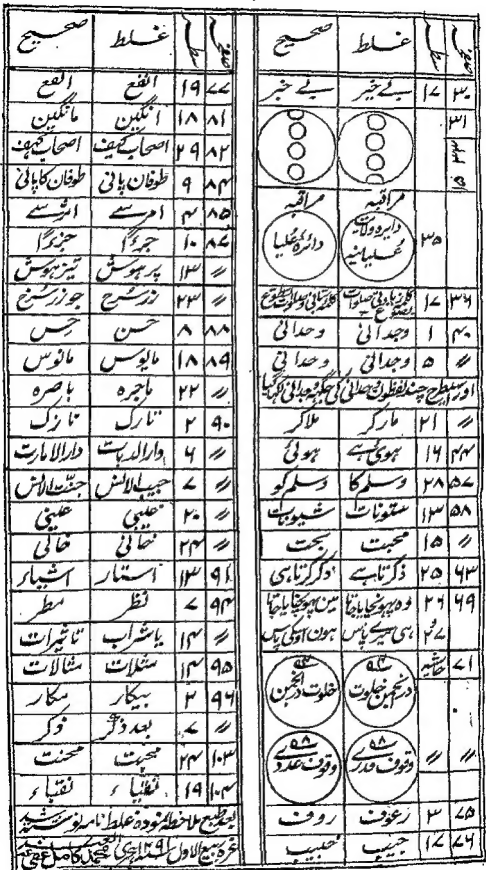 صفحہ سطر غلط صحیح
۳۰ ۱۷ بے خیر بے خبر
۳۱
۳۵ مراقبہ مراقبہ
دایرہ ولایت علیا دائرہ علیا
۳۶ ۱۷
۴۰ ۱ وجدانی وحدانی
〃 ۵ وجدانی وحدانی
اور اسیطرح چند لفظون مین وحدانی کی جگہہ وجدانی لکھا گیا
〃 ۲۱ مارکر ملاکر
۴۴ ۱۶ ہوئی ہے ہوئی
۵۷ ۲۸ وسلم کا وسلم کو
۵۸ ۱۳ ستونات شیونات
〃 ۱۵ محبت بحت
۶۳ ۲۵ ذکر تاہے ذکر کرتا ہی
۶۹ ۲۶ و ۲۷ وہ پہونچایا جاتا مین پہونچایا جاتا
ہی میرے پاس ہون اونکی پاس
۷۱ حاشیہ در انجمن خلوت خلوت در انجمن
〃 〃 ۵۸ وقوف قدرے ۵۸ وقوف عددی
۷۵ ۳ زعوف روف
۷۶ ۱۷ جبیب حبیب
صفحہ سطر غلط صحیح
۷۷ ۱۹ انفع الفع
۸۱ ۱۸ انگین مانگین
۸۲ ۲۹ اصحاب کیف اصحاب کہف
۸۴ ۹ طوفان پانی طوفان کا پانی
۸۵ ۴ امر سے اثر سے
۸۷ ۱۰ جبرءًا جزءًا
〃 ۱۳ پر ہوش تیز ہوش
〃 ۲۳ زر سرخ جو زر سرخ
۸۸ ۸ حسن حس
۸۹ ۱۸ مایوس مانوس
〃 ۲۲ ماجرہ باصرہ
۹۰ ۲ تارک نازک
〃 ۶ دار الدیات دار الامارت
〃 ۷ حبیب الانس جنت الانس
〃 ۲۰ عیبی عینی
〃 ۲۴ خانی خالی
۹۱ ۱۳ استار اشیاء
۹۴ ۷ نظر مطر
〃 ۱۴ یا شراب تاثیرات
۹۵ ۱۴ مثلات مثالات
۹۶ ۲ بیکار مکار
〃 ۷ بعد ذکر ذکر
۱۰۳ ۲۴ محبت محنت
۱۰۴ ۱۹ نقباء
بعد طبع ملاحظہ نمودہ غلط نامہ نوشتہ شد
غرہ ربیع الاول